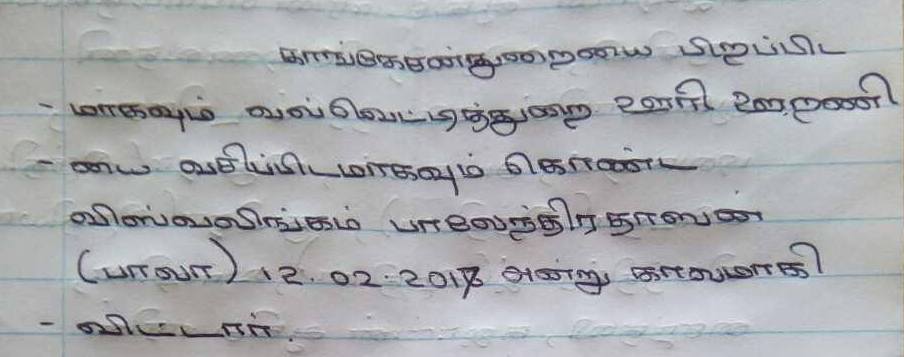 காங்கேசன்துறையை பிறப்பிட
- மாகவும் வல்வெட்டித்துறை ஊரி ஊறணி
- யை வசிப்பிடமாகவும் கொண்ட
விஸ்வலிங்கம் பாலேந்திரதாஸன்
(பாலா) 12.02.2018 அன்று காலமாகி
- விட்டார்.